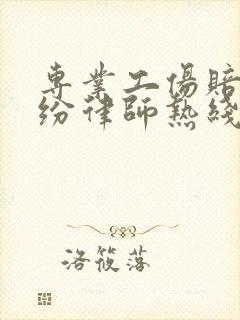 專業工傷賠
纷律師熱綫
洛筱落